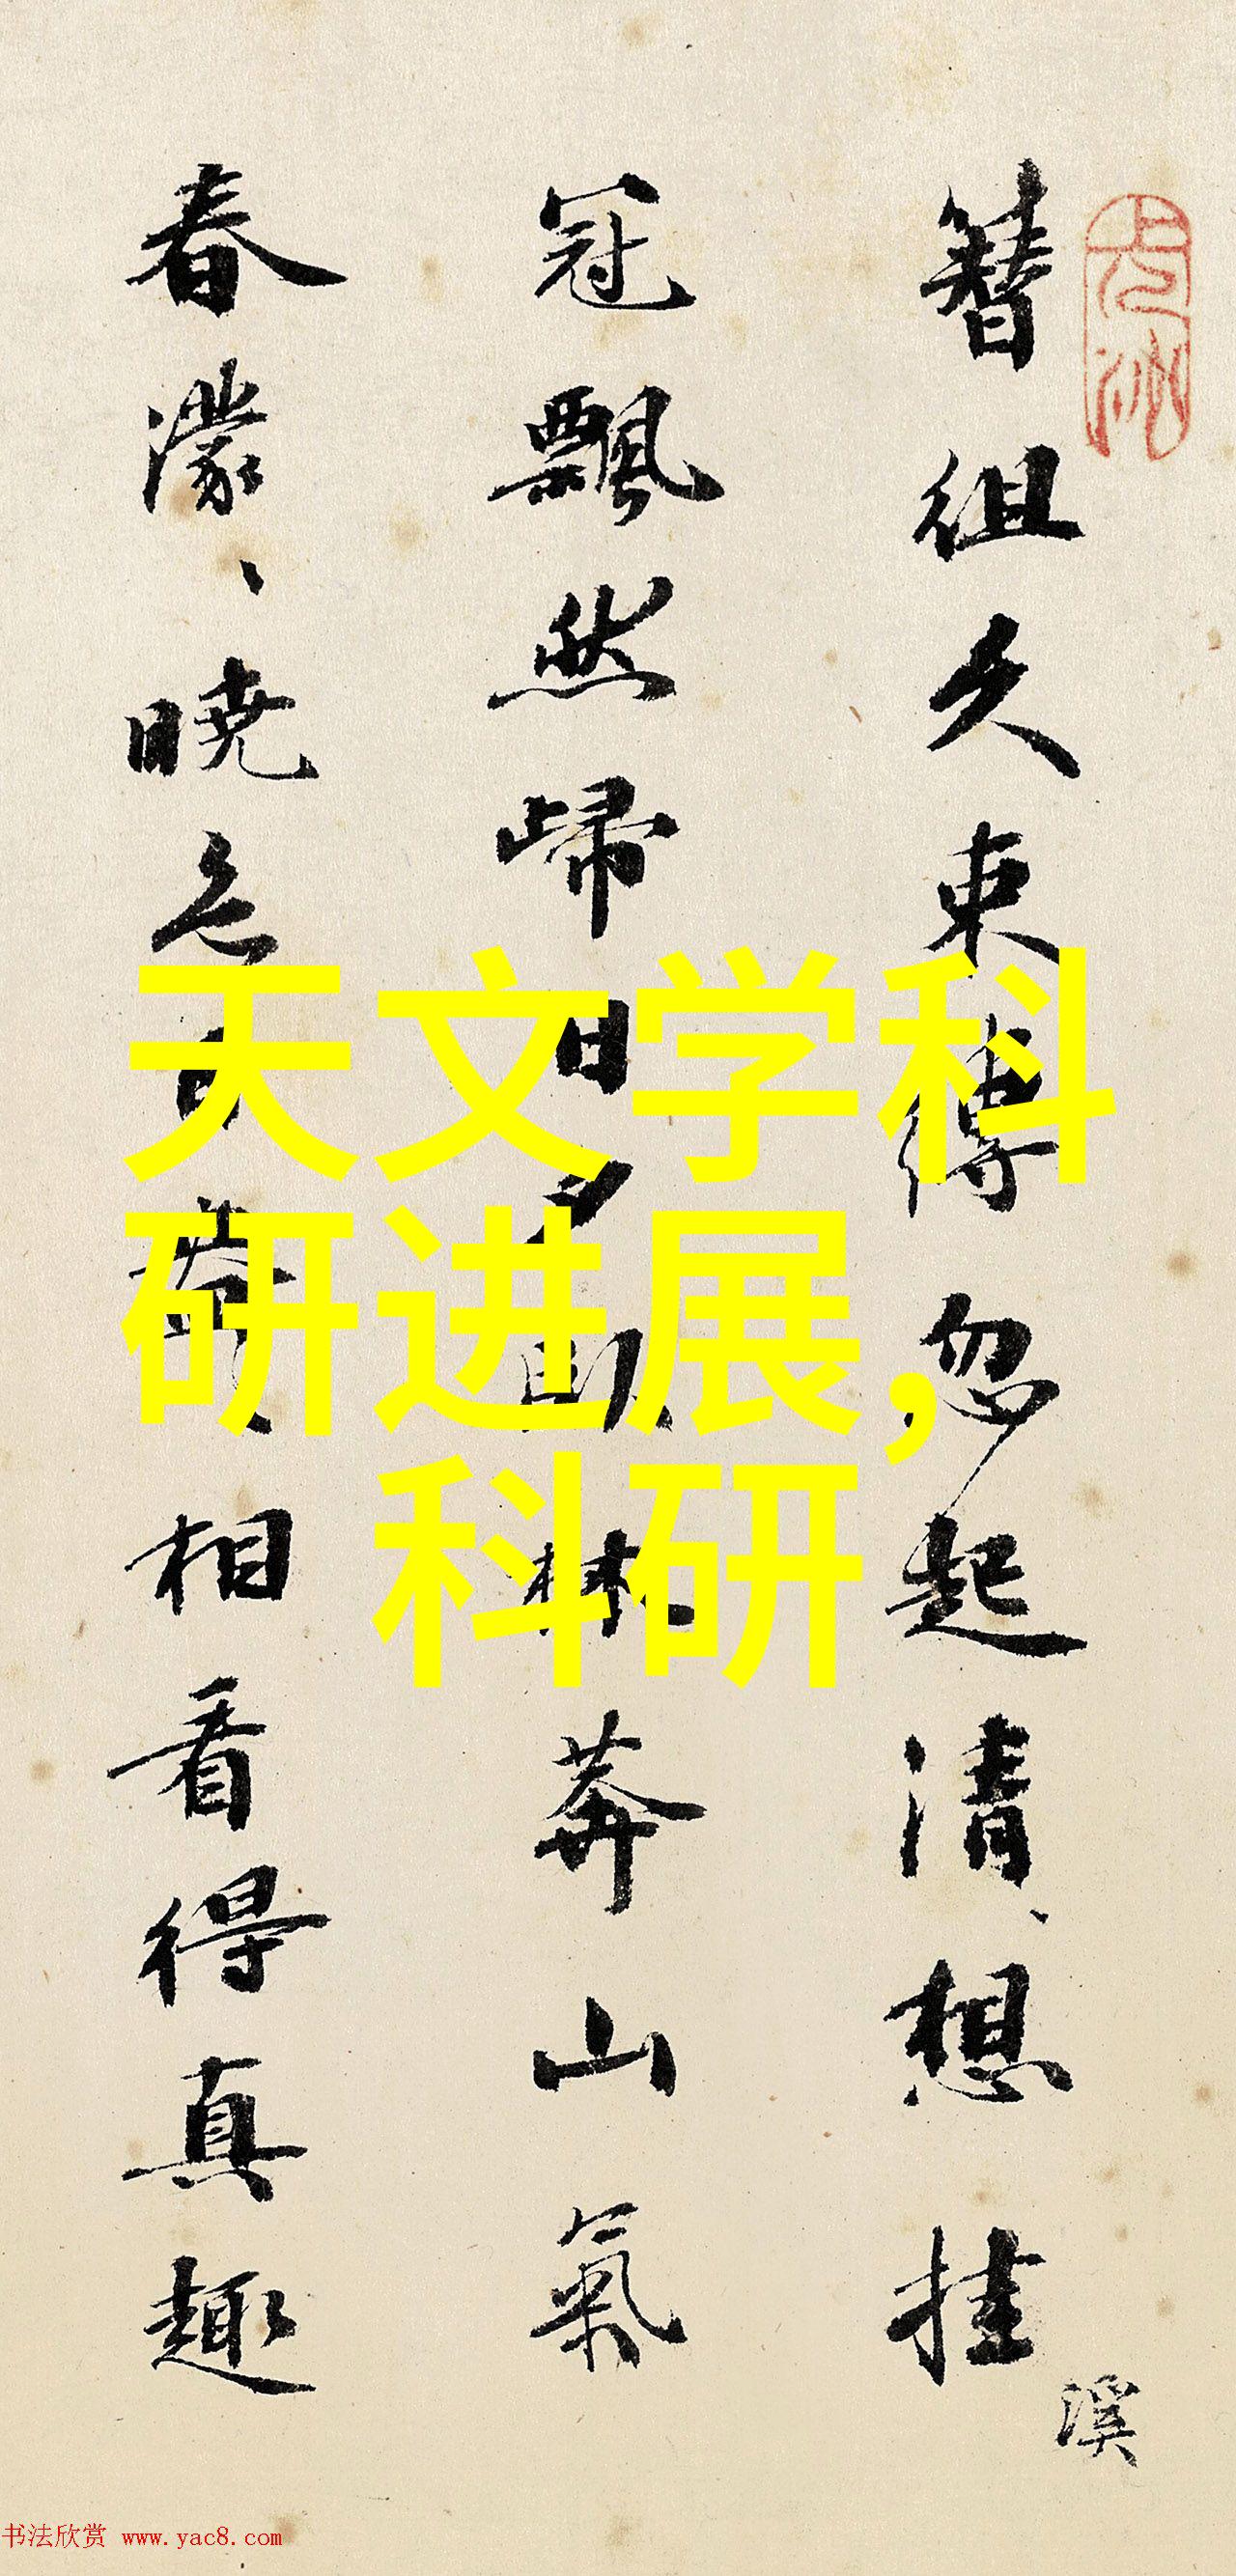 簪組久束縛忽起清想挂
冠飄然歸日夕臥林莽山氣
春濛、曉色
相看得真趣
溪
天文学科
研进展，
科研
书法欣赏 www.yac8.com